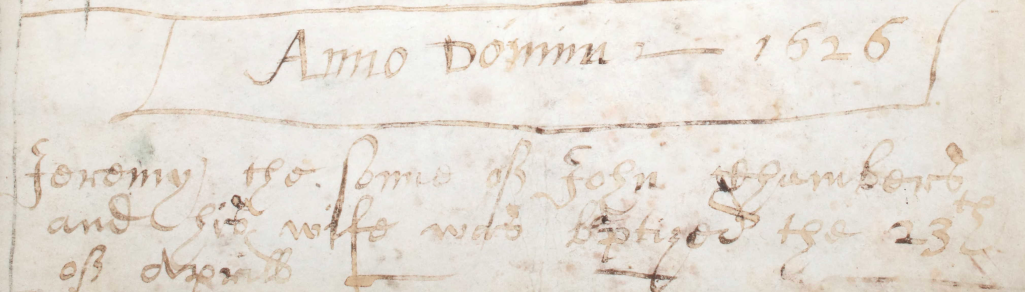 Anno Domini 1626
Jeremy the sonne of John Chambers
and his wife was baptized the 23th
of Aprill